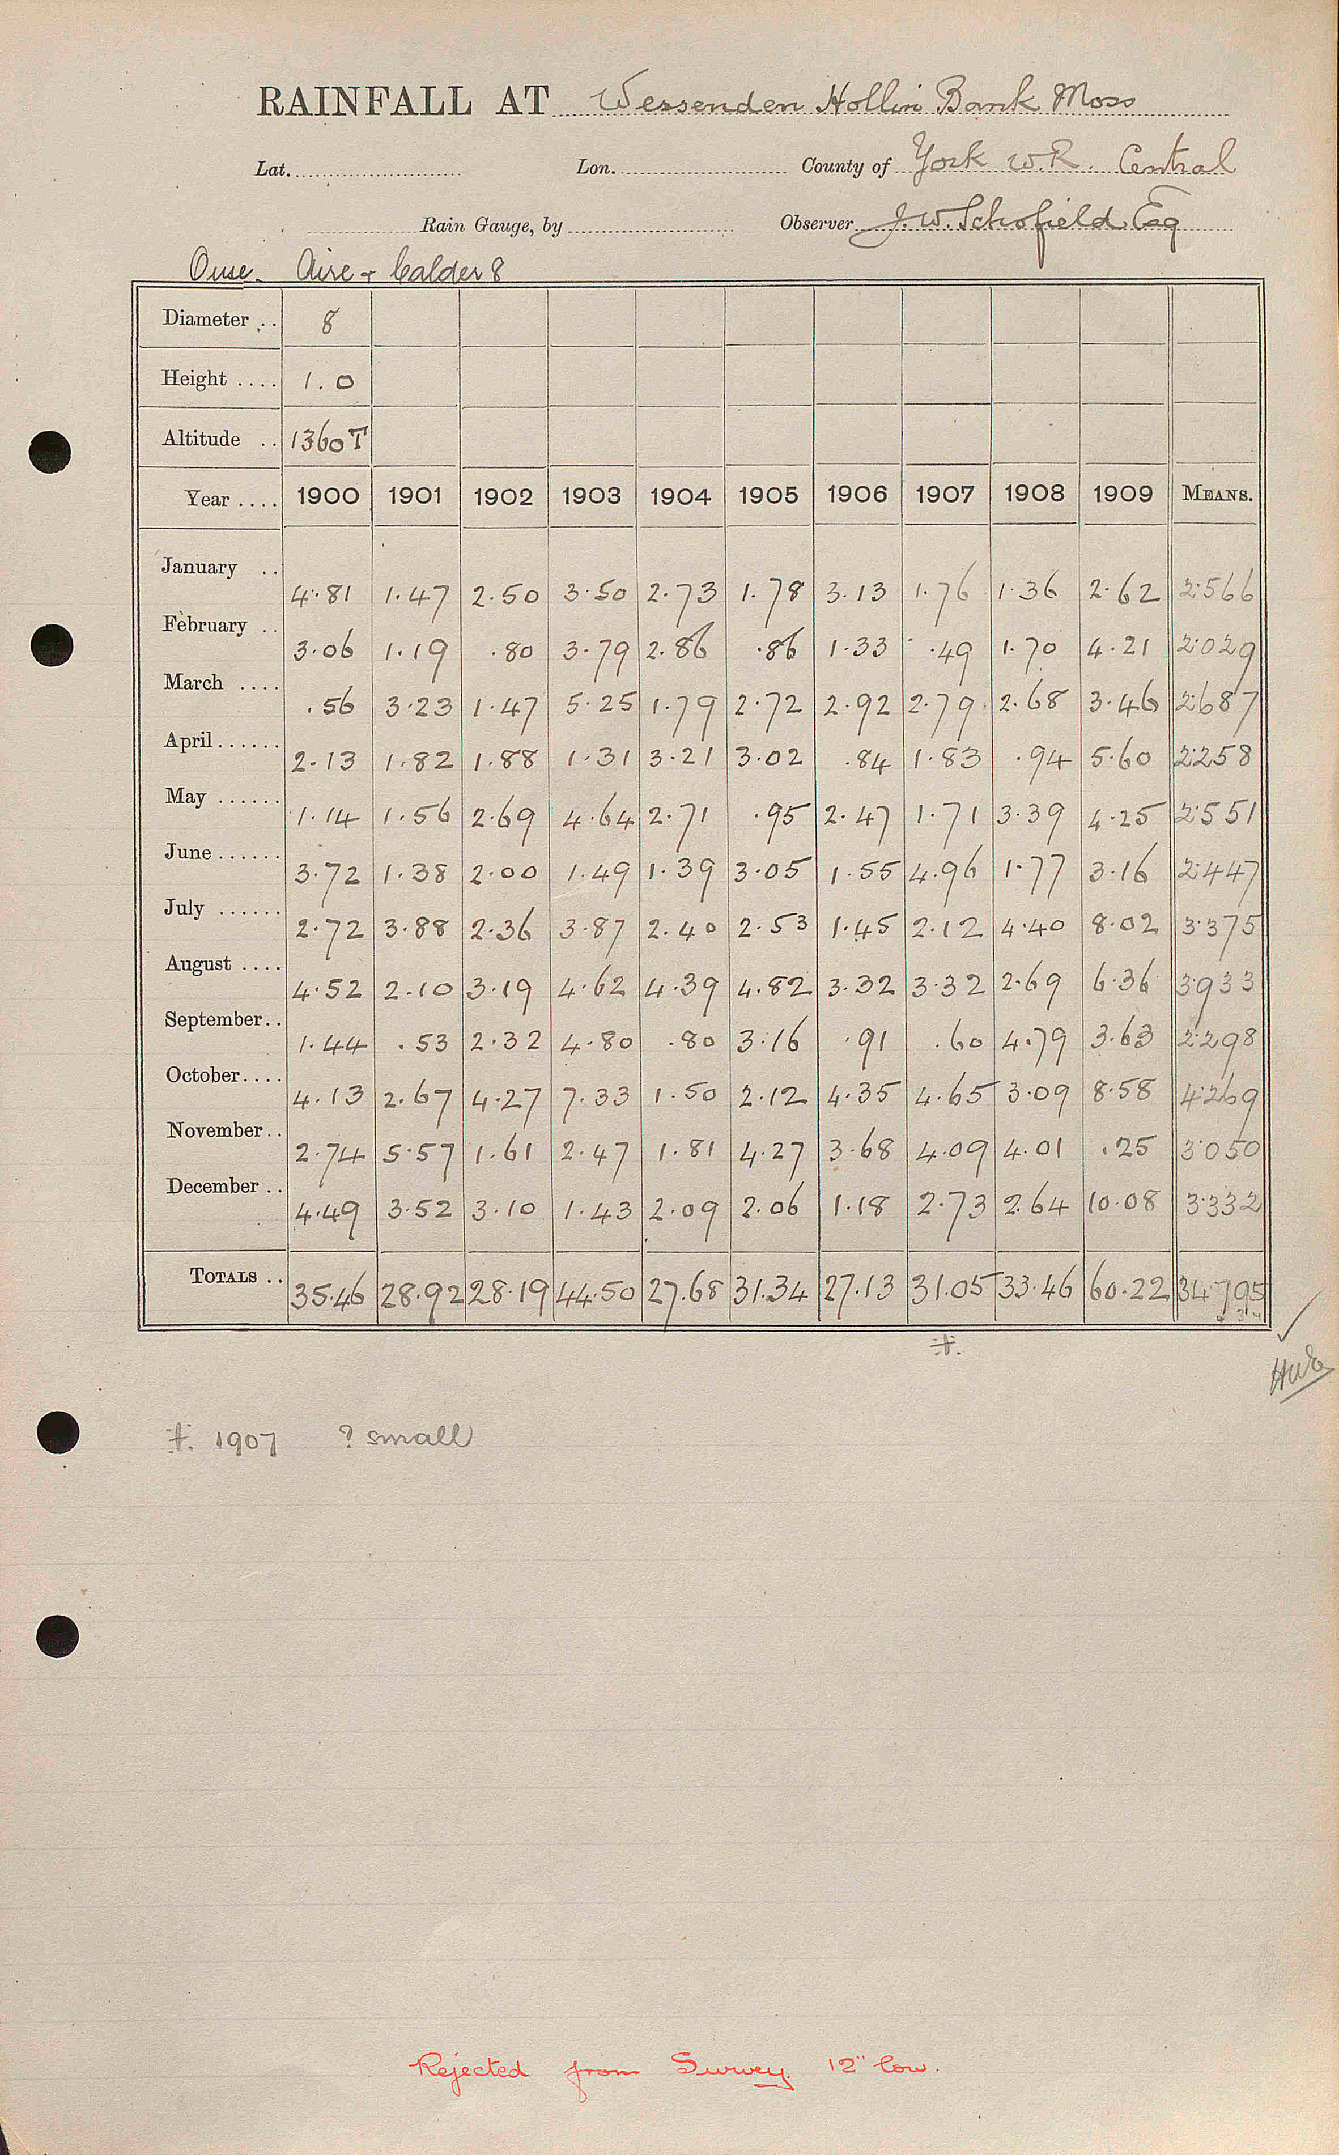 RAINFALL AT Wessenden Hollin Bank Moss
Lat. Lon. County of York W.R. Central
Rain Gauge, by Observer J. W. Schofield Esq
Ouse. Aire + Calder 8
Diameter .. 8
Height .... 1.0
Altitude .. 1360 T
Year .... 1900 1901 1902 1903 1904 1905 1906 1907 1908 1909 MEANS.
January .. 4.81 1.47 2.50 3.50 2.73 1.78 3.13 1.76 1.36 2.62 2.566
February .. 3.06 1.19 .80 3.79 2.86 .86 1.33 .49 1.70 4.21 2.029
March .... .56 3.23 1.47 5.25 1.79 2.72 2.92 2.79 2.68 3.46 2.687
April...... 2.13 1.82 1.88 1.31 3.21 3.02 .84 1.83 .94 5.60 2.258
May ...... 1.14 1.56 2.69 4.64 2.71 .95 2.47 1.71 3.39 4.25 2.551
June...... 3.72 1.38 2.00 1.49 1.39 3.05 1.55 4.96 1.77 3.16 2.447
July ...... 2.72 3.88 2.36 3.87 2.40 2.53 1.45 2.12 4.40 8.02 3.375
August .... 4.52 2.10 3.19 4.62 4.39 4.82 3.32 3.32 2.69 6.36 3.933
September.. 1.44 .53 2.32 4.80 .80 3.16 .91 .60 4.79 3.63 2.298
October.... 4.13 2.67 4.27 7.33 1.50 2.12 4.35 4.65 3.09 8.58 4.269
November.. 2.74 5.57 1.61 2.47 1.81 4.27 3.68 4.09 4.01 .25 3.050
December .. 4.49 3.52 3.10 1.43 2.09 2.06 1.18 2.73 2.64 10.08 3.332
TOTALS .. 35.46 28.92 28.19 44.50 27.68 31.34 27.13 31.05 33.46 60.22 34.795
‡.
‡. 1907 ? small
Rejected from Survey. 12" low.